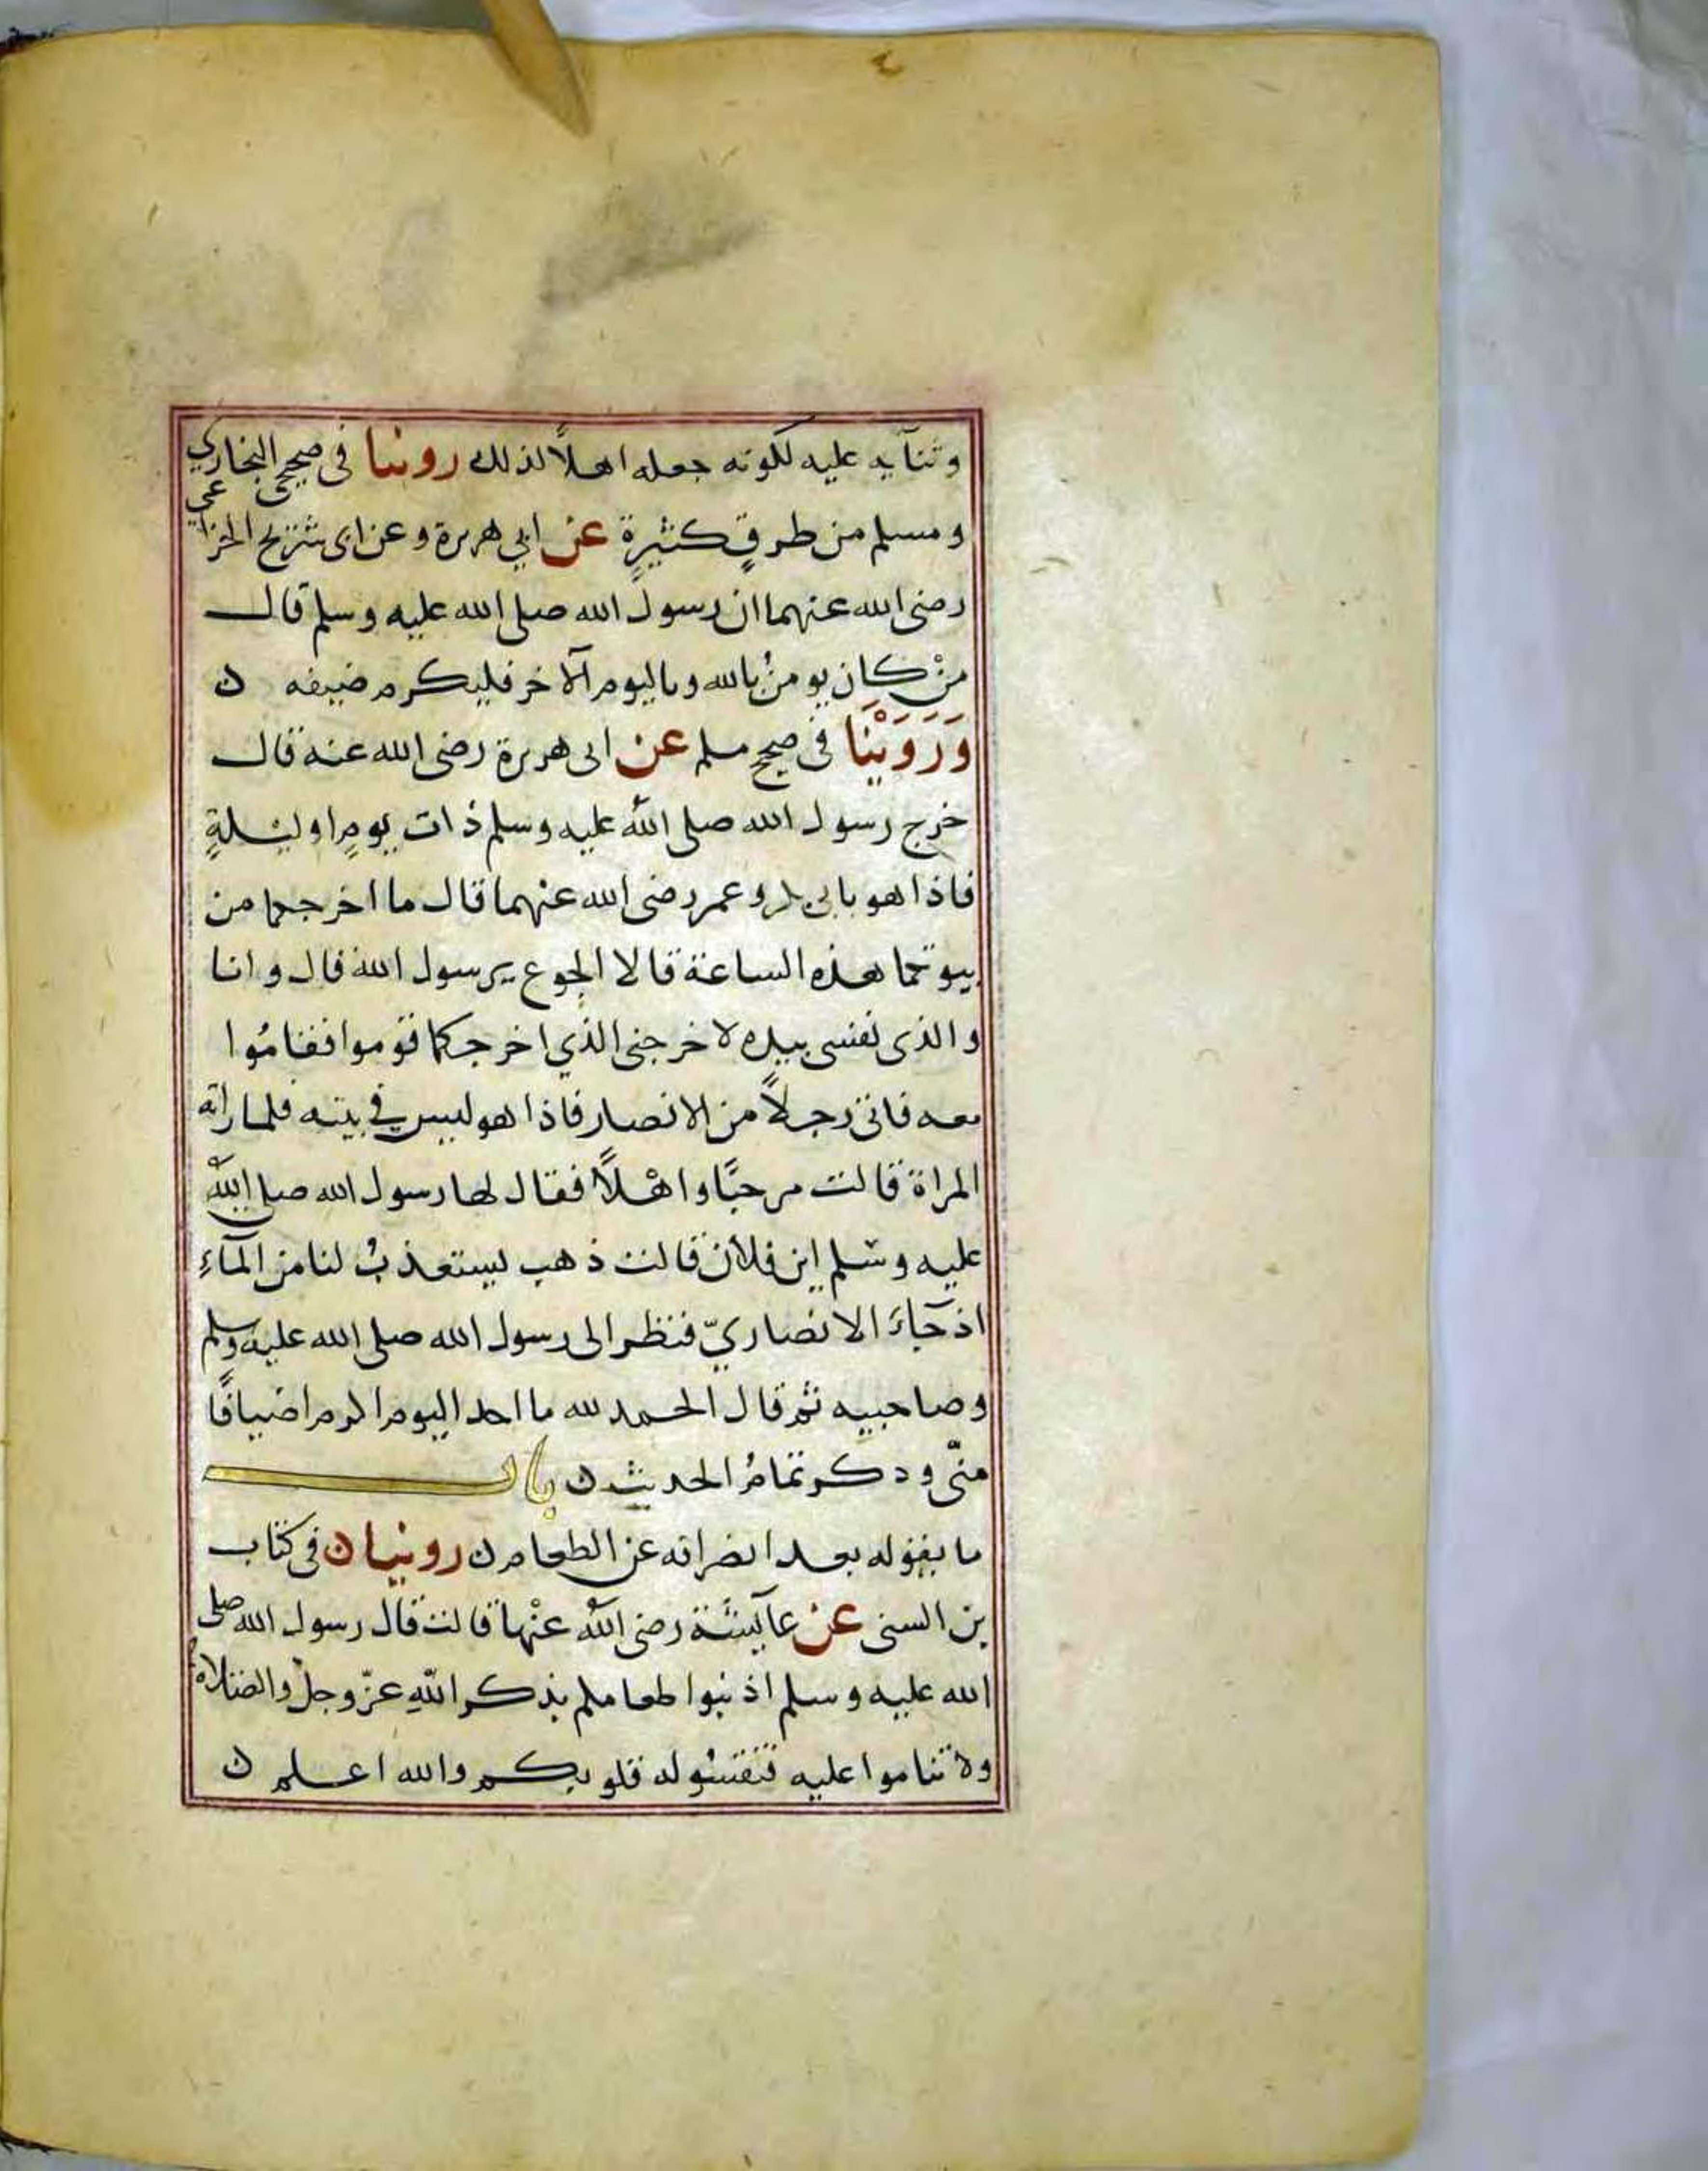 وثنآيه عليه لكونه جعله اهلاً لذلك روينا في صحيحي البخاري
ومسلم من طرقٍ كثيرةٍ عن ابي هريرة وعن ابى شريح الخزاعي
رضى الله عنهما ان رسول الله صلى الله عليه وسلم قال
منْ كان يومنُ بالله وباليوم الآخر فليكرم ضيفه ن
وَرَوَيْنَا فى صحيح مسلم عن ابى هريرة رضى الله عنه قال
خرج رسول الله صلى الله عليه وسلم ذات يومٍ او ليلةٍ
فاذا هو بابى بكر وعمر رضى الله عنهما قال ما اخرجكما من
بيوتكما هذه الساعة قالا الجوع يرسول الله قال وانا
والذى نفسى بيده لاخرجنى الذي اخرجكما قوموا فقامُوا
معه فاتى رجلاً من الانصار فاذا هو ليس في بيته فلما راته
المراة قالت مرحبًا واهْلاً فقال لها رسول الله صلى الله
عليه وسلم اين فلان قالت ذهب ليستعذبُ لنا من المآءِ
اذ جآءَ الانصاريّ فنظر الى رسول الله صلى الله عليه وسلم
وصاحبيه ثم قال الحمد لله ما احد اليوم اكرم اضيافًا
منّى وذكر تمامُ الحديث ن باب
ما يقوله بعد انصرافه عن الطعام ن روينا ن فى كتاب
بن السنى عن عآيشة رضى الله عنْها قالت قال رسول الله صلى
الله عليه وسلم اذيبوا طعامكم بذكر اللهِ عزّ وجلّ والصلاة
ولا تناموا عليه فتقسُو له قلوبكم والله اعلم ن